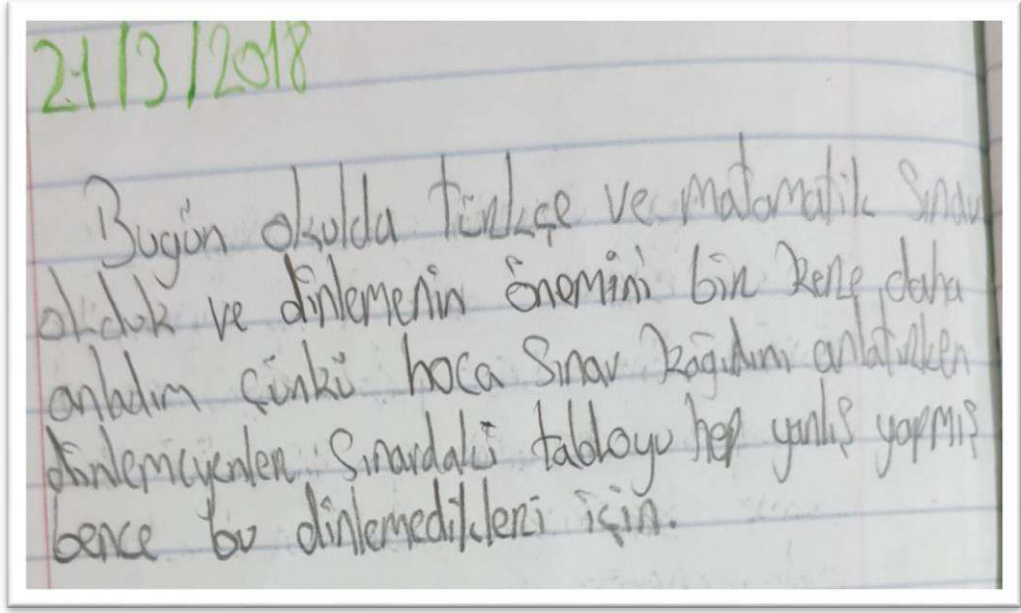 21/3/2018
Bugün okulda türkçe ve matamatik Sınavı
olduk ve dinlemenin önemini bir kere daha
anladım çünkü hoca Sınav kağıdını anlatırken
dinlemeyenler Sınavdaki tabloyu hep yanlış yapmış
bence bu dinlemedikleri için.